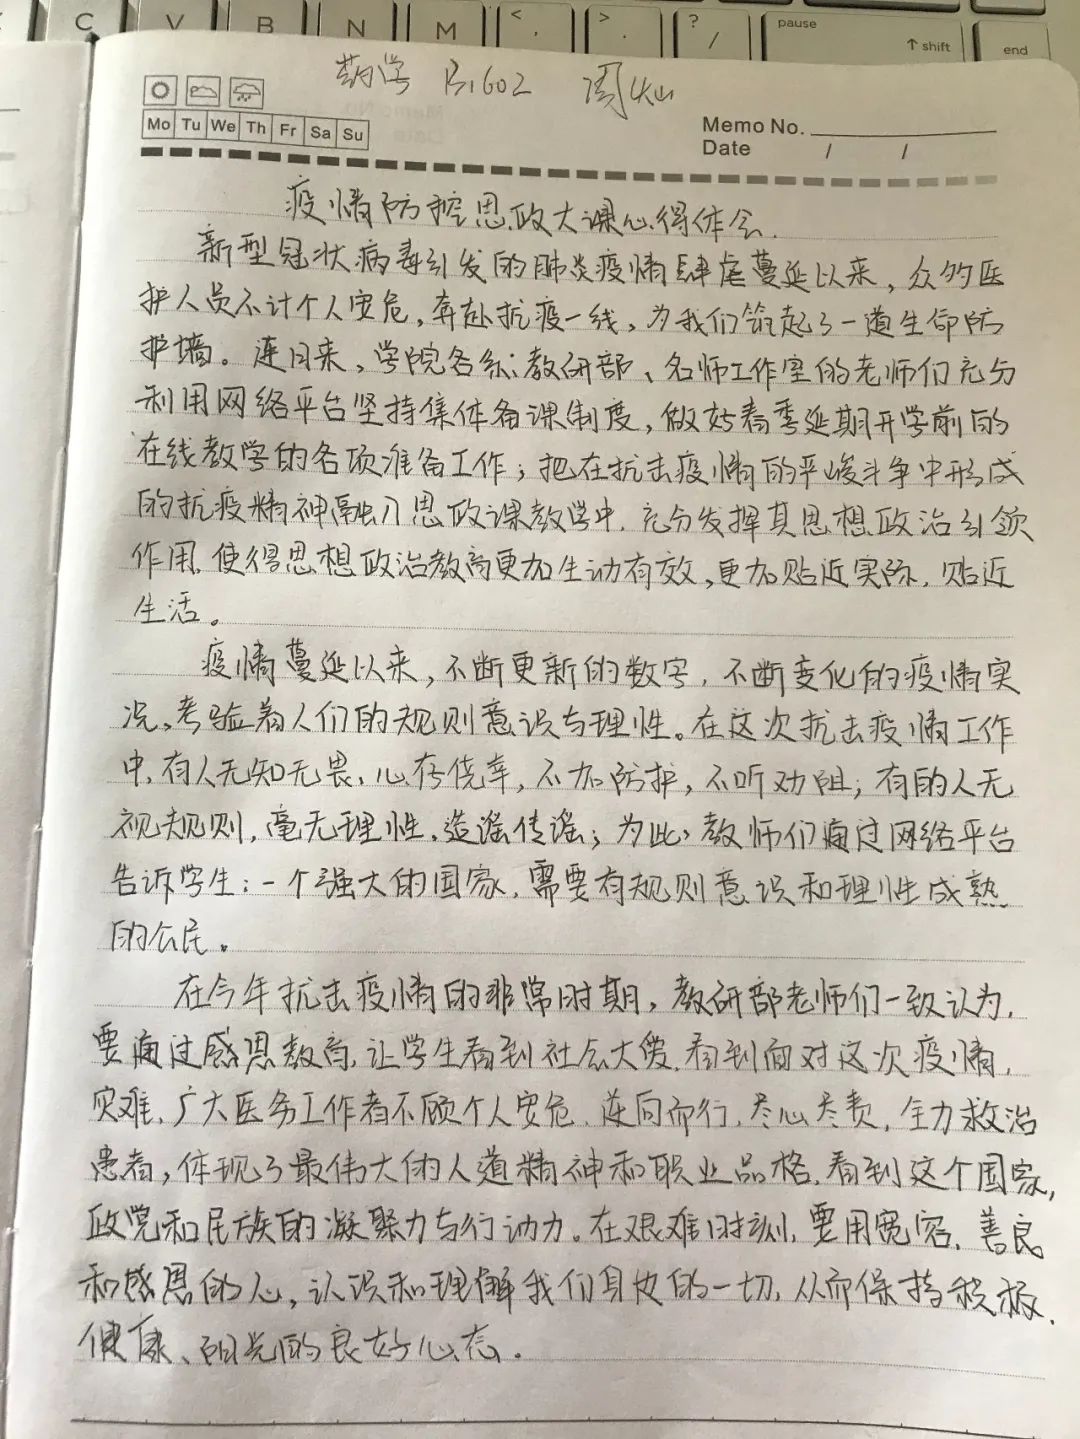 C V B N M < , > . ? / pause ↑ shift end
药学 B1602 周灿
Mo Tu We Th Fr Sa Su
Memo No.
Date / /
疫情防控思政大课心得体会.
新型冠状病毒引发的肺炎疫情肆虐蔓延以来，众多医
护人员不计个人安危，奔赴抗疫一线，为我们筑起了一道生命防
护墙。连日来，学院各系、教研部、名师工作室的老师们充分
利用网络平台坚持集体备课制度，做好春季延期开学前的
在线教学的各项准备工作；把在抗击疫情的严峻斗争中形成
的抗疫精神融入思政课教学中，充分发挥其思想政治引领
作用，使得思想政治教育更加生动有效，更加贴近实际，贴近
生活。
疫情蔓延以来，不断更新的数字，不断变化的疫情实
况，考验着人们的规则意识与理性。在这次抗击疫情工作
中，有人无知无畏、心存侥幸，不加防护，不听劝阻；有的人无
视规则，毫无理性，造谣传谣；为此，教师们通过网络平台
告诉学生：一个强大的国家，需要有规则意识和理性成熟
的公民。
在今年抗击疫情的非常时期，教研部老师们一致认为，
要通过感恩教育，让学生看到社会大爱，看到面对这次疫情，
灾难，广大医务工作者不顾个人安危，逆向而行，尽心尽责，全力救治
患者，体现了最伟大的人道精神和职业品格，看到这个国家，
政党和民族的凝聚力与行动力。在艰难时刻，要用宽容，善良
和感恩的心，认识和理解我们身边的一切，从而保持积极、
健康、阳光的良好心态。